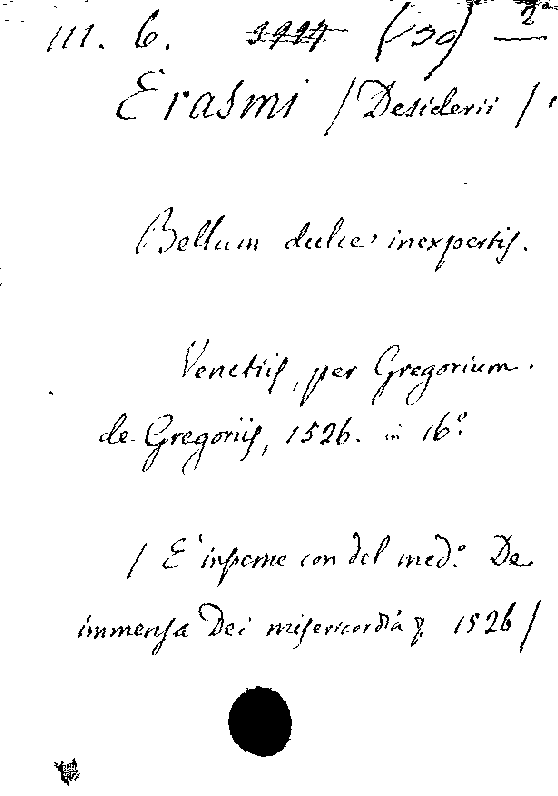 111. 6. 3924 (30) 2ª
Erasmi / Desiderii /
Bellum dulce inexpertis.
Venetiis, per Gregorium
de Gregoriis, 1526. in 16º
/ E' insieme con del med.º De
immensa Dei misericordia &. 1526 /